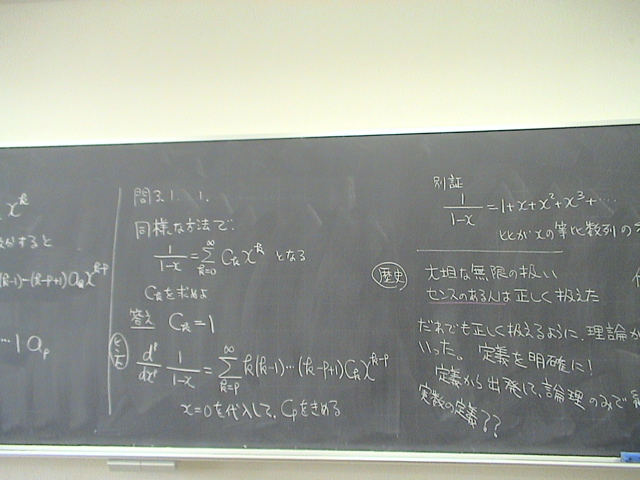 x^k
すると
(k-1)…(k-p+1)a_k x^{k-p}
…1 a_p
問3.1.1.
同様な方法で
1/(1-x) = Σ_{k=0}^{∞} C_k x^k となる
C_kを求めよ
答え C_k = 1
d^p/dx^p 1/(1-x) = Σ_{k=p}^{∞} k(k-1)…(k-p+1)C_k x^{k-p}
x=0を代入して、C_pをきめる
別証
1/(1-x) = 1+x+x^2+x^3+…
比がxの等比数列の
歴史 大坦な無限の扱い
センスのある人は正しく扱えた
だれでも正しく扱えるように、理論が
いった。定義を明確に!
定義から出発して、論理のみで
実数の定義??